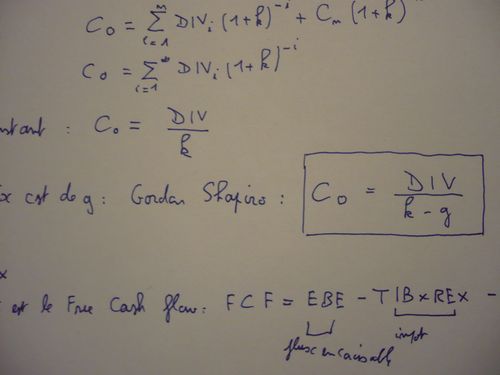 C₀ = Σ i=1 n DIVᵢ (1+k)⁻ⁱ + Cₙ (1+k)
C₀ = Σ i=1 ∞ DIVᵢ (1+k)⁻ⁱ
C₀ = DIV / k
est de g : Gordan Shapiro : C₀ = DIV / k - g
est le Free Cash flow : FCF = EBE - TIB x REX -
flux encaissable impt